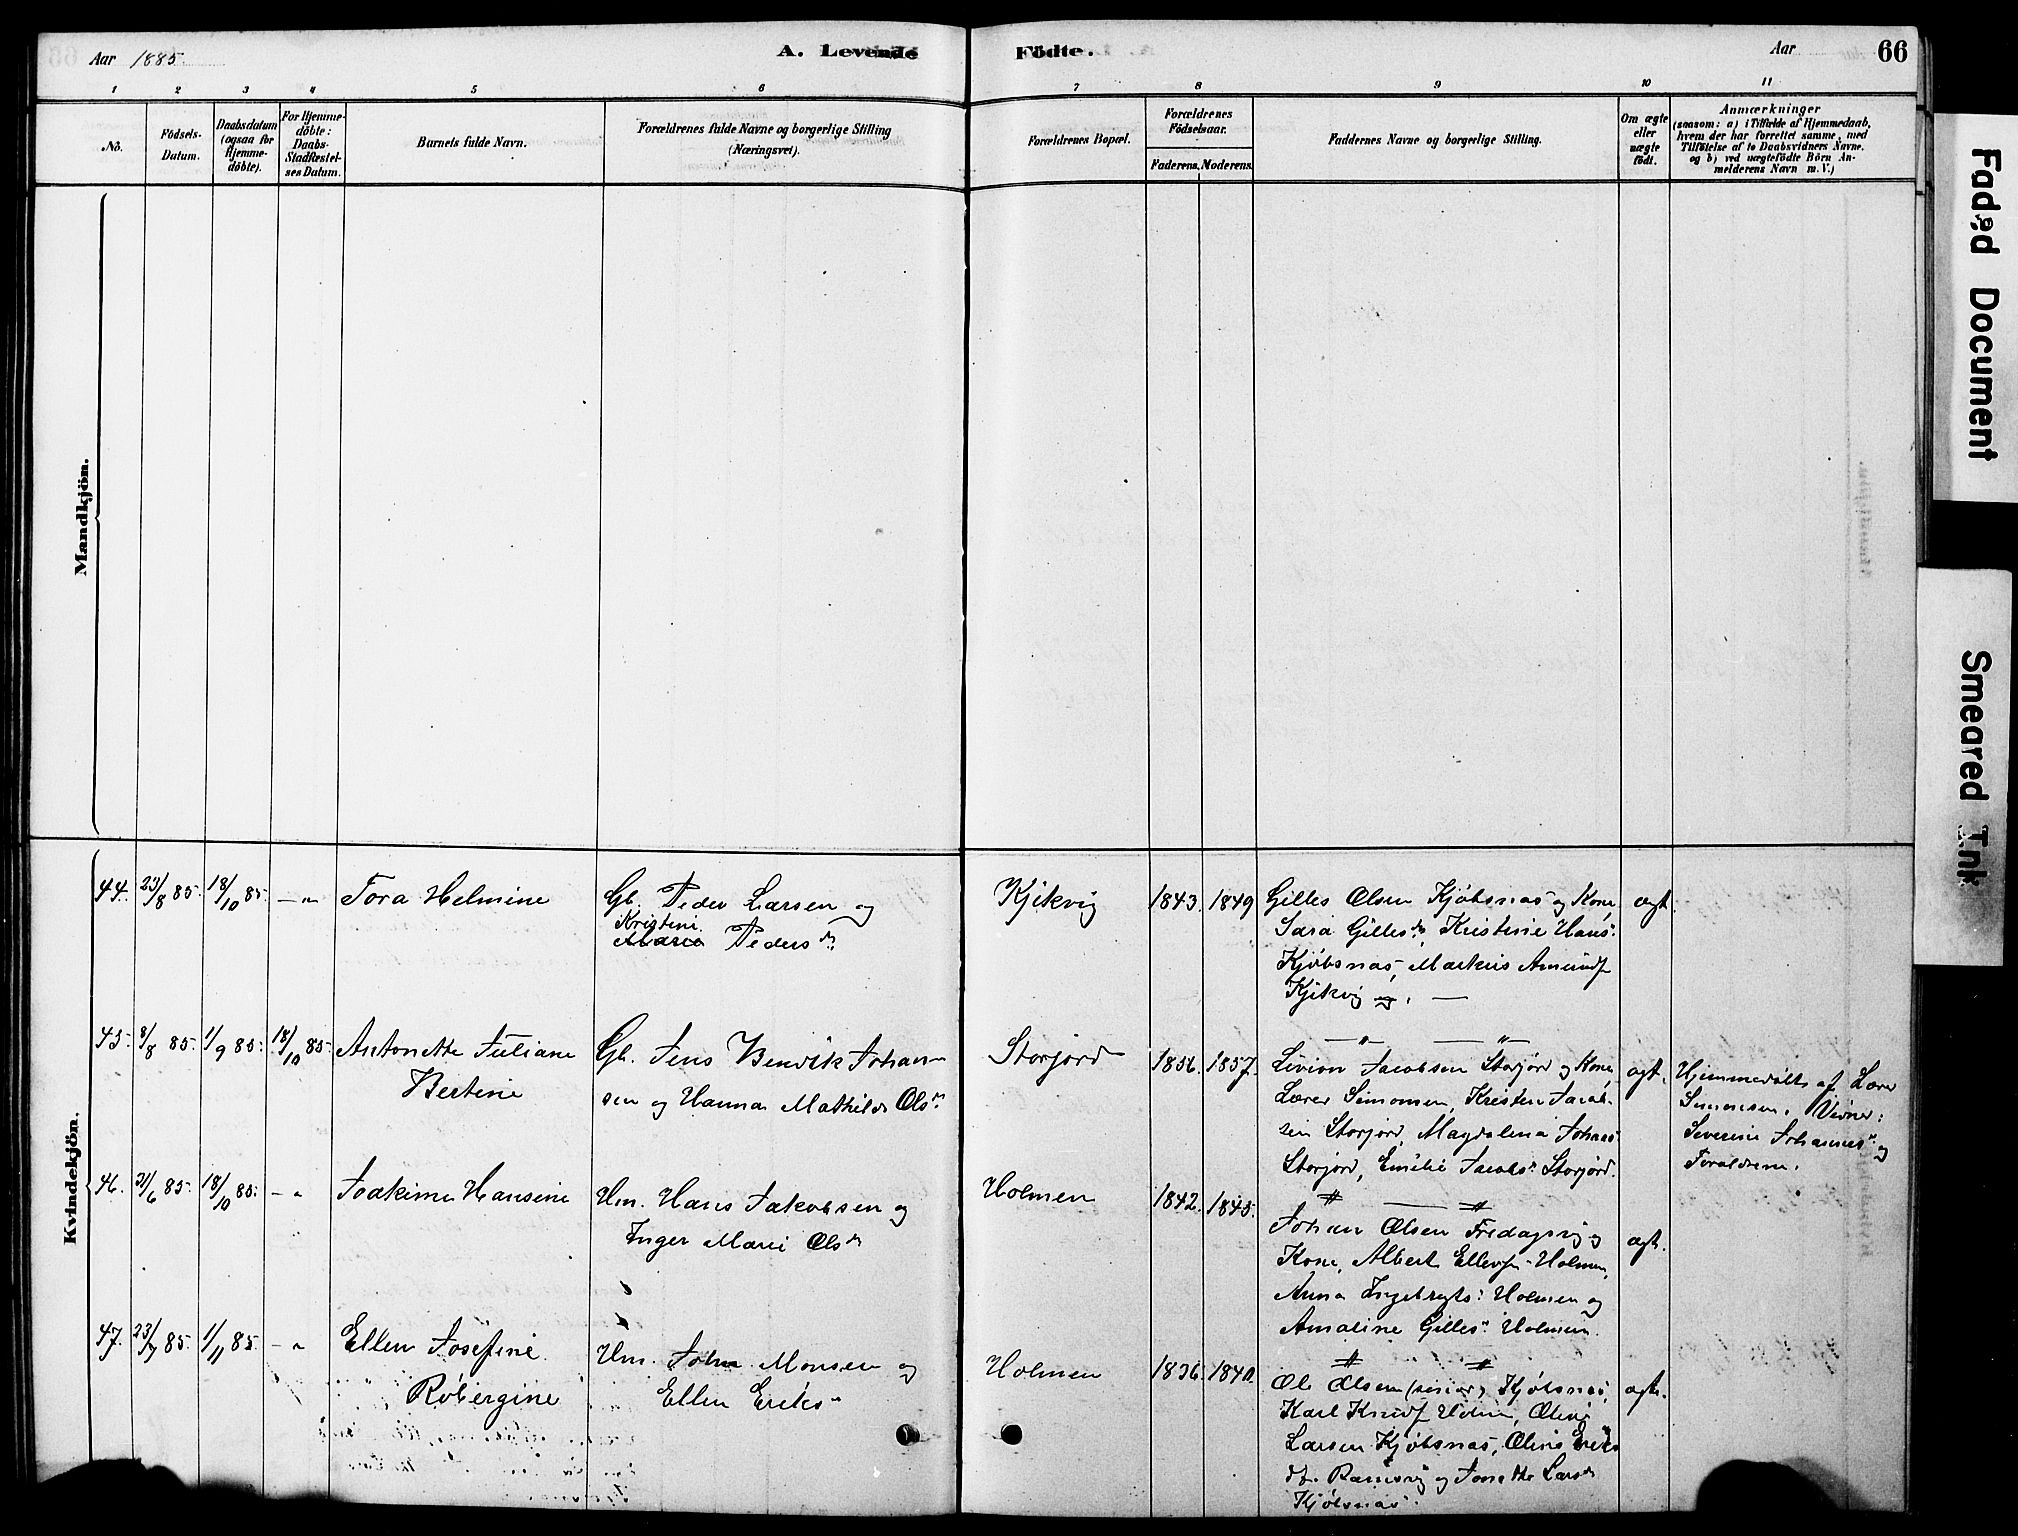 Aar 1885.
A. Levende
Födte.
Aar
66
1 2 3 4 5 6 7 8 9 10 11
No.
Födsels-
Datum.
Daabsdatum
(ogsaa för
Hjemme-
döbte).
For Hjemme-
döbte:
Daabs-
Stadfæstel-
ses Datum.
Barnets fulde Navn.
Forældrenes fulde Navne og borgerlige Stilling
(Næringsvei).
Forældrenes Bopæl.
Forældrenes
Födselsaar.
Faderens. Moderens.
Faddernes Navne og borgerlige Stilling.
Om ægte
eller
uægte
født.
Anmærkninger
(saasom: a) i Tilfælde af Hjemmedaab,
hvem der har forrettet samme, med
Tilföielse af to Daabsvidners Navne,
og b) ved uægtefödte Börn An-
melderens Navn m. V.)
Mandkjön.
Kvindekjön.
44. 23/8 85. 18/10 85. — " Tora Helmine
Gb. Peder Larsen og
Kristine
Maria Pedersdr.
Kjikvig 1843. 1849
Gilles Olsen Kjöbsnas og Kone,
Sara Gillesdr, Kristine Hans.
Kjöbsnas, Markus Amundf
Kjikvig og. —
ægt.
45. 8/8 85. 1/9 85. 18/10 85. Antonette Juliane
Bertine
Gb. Jens Bendik Johan-
sen og Hanna Mathilde Olsdr
Storjord 1856. 1857.
— " — — " —
Jacobsen Storjord og Kone,
Lærer Simonsen, Kristen Jacob-
sen Storjord, Magdalena Johans.
Storjord, Emilie Jacobs. Storjord.
ægt.
Hjemmedöbt af Lærer
Simonsen. Vidner:
Severine Johannes. og
Forældrene.
46. 21/6 85. 18/10 85. — " Joakime Hansine
Hm. Hans Jakobsen og
Inger Marie Olsdr
Holmen 1842. 1845.
Johan Olsen Fredagsvig og
Kone, Albert Ellevsf Holmen,
Anna Ingebrigts. Holmen og
Amaline Gilles. Holmen.
ægt.
47. 23/7 85. 1/11 85. — " Ellen Josefine
Robergine
Hm. John Monsen og
Ellen Eriks.
Holmen 1836. 1840.
Ole Olsen (senior) Kjöbsnas,
Karl Knudf Holm,
Larsen Kjöbsnas, Eriks
dr. og Jonette Larsdr
Kjöbsnas.
ægt.
Faded Document
Smeared Ink